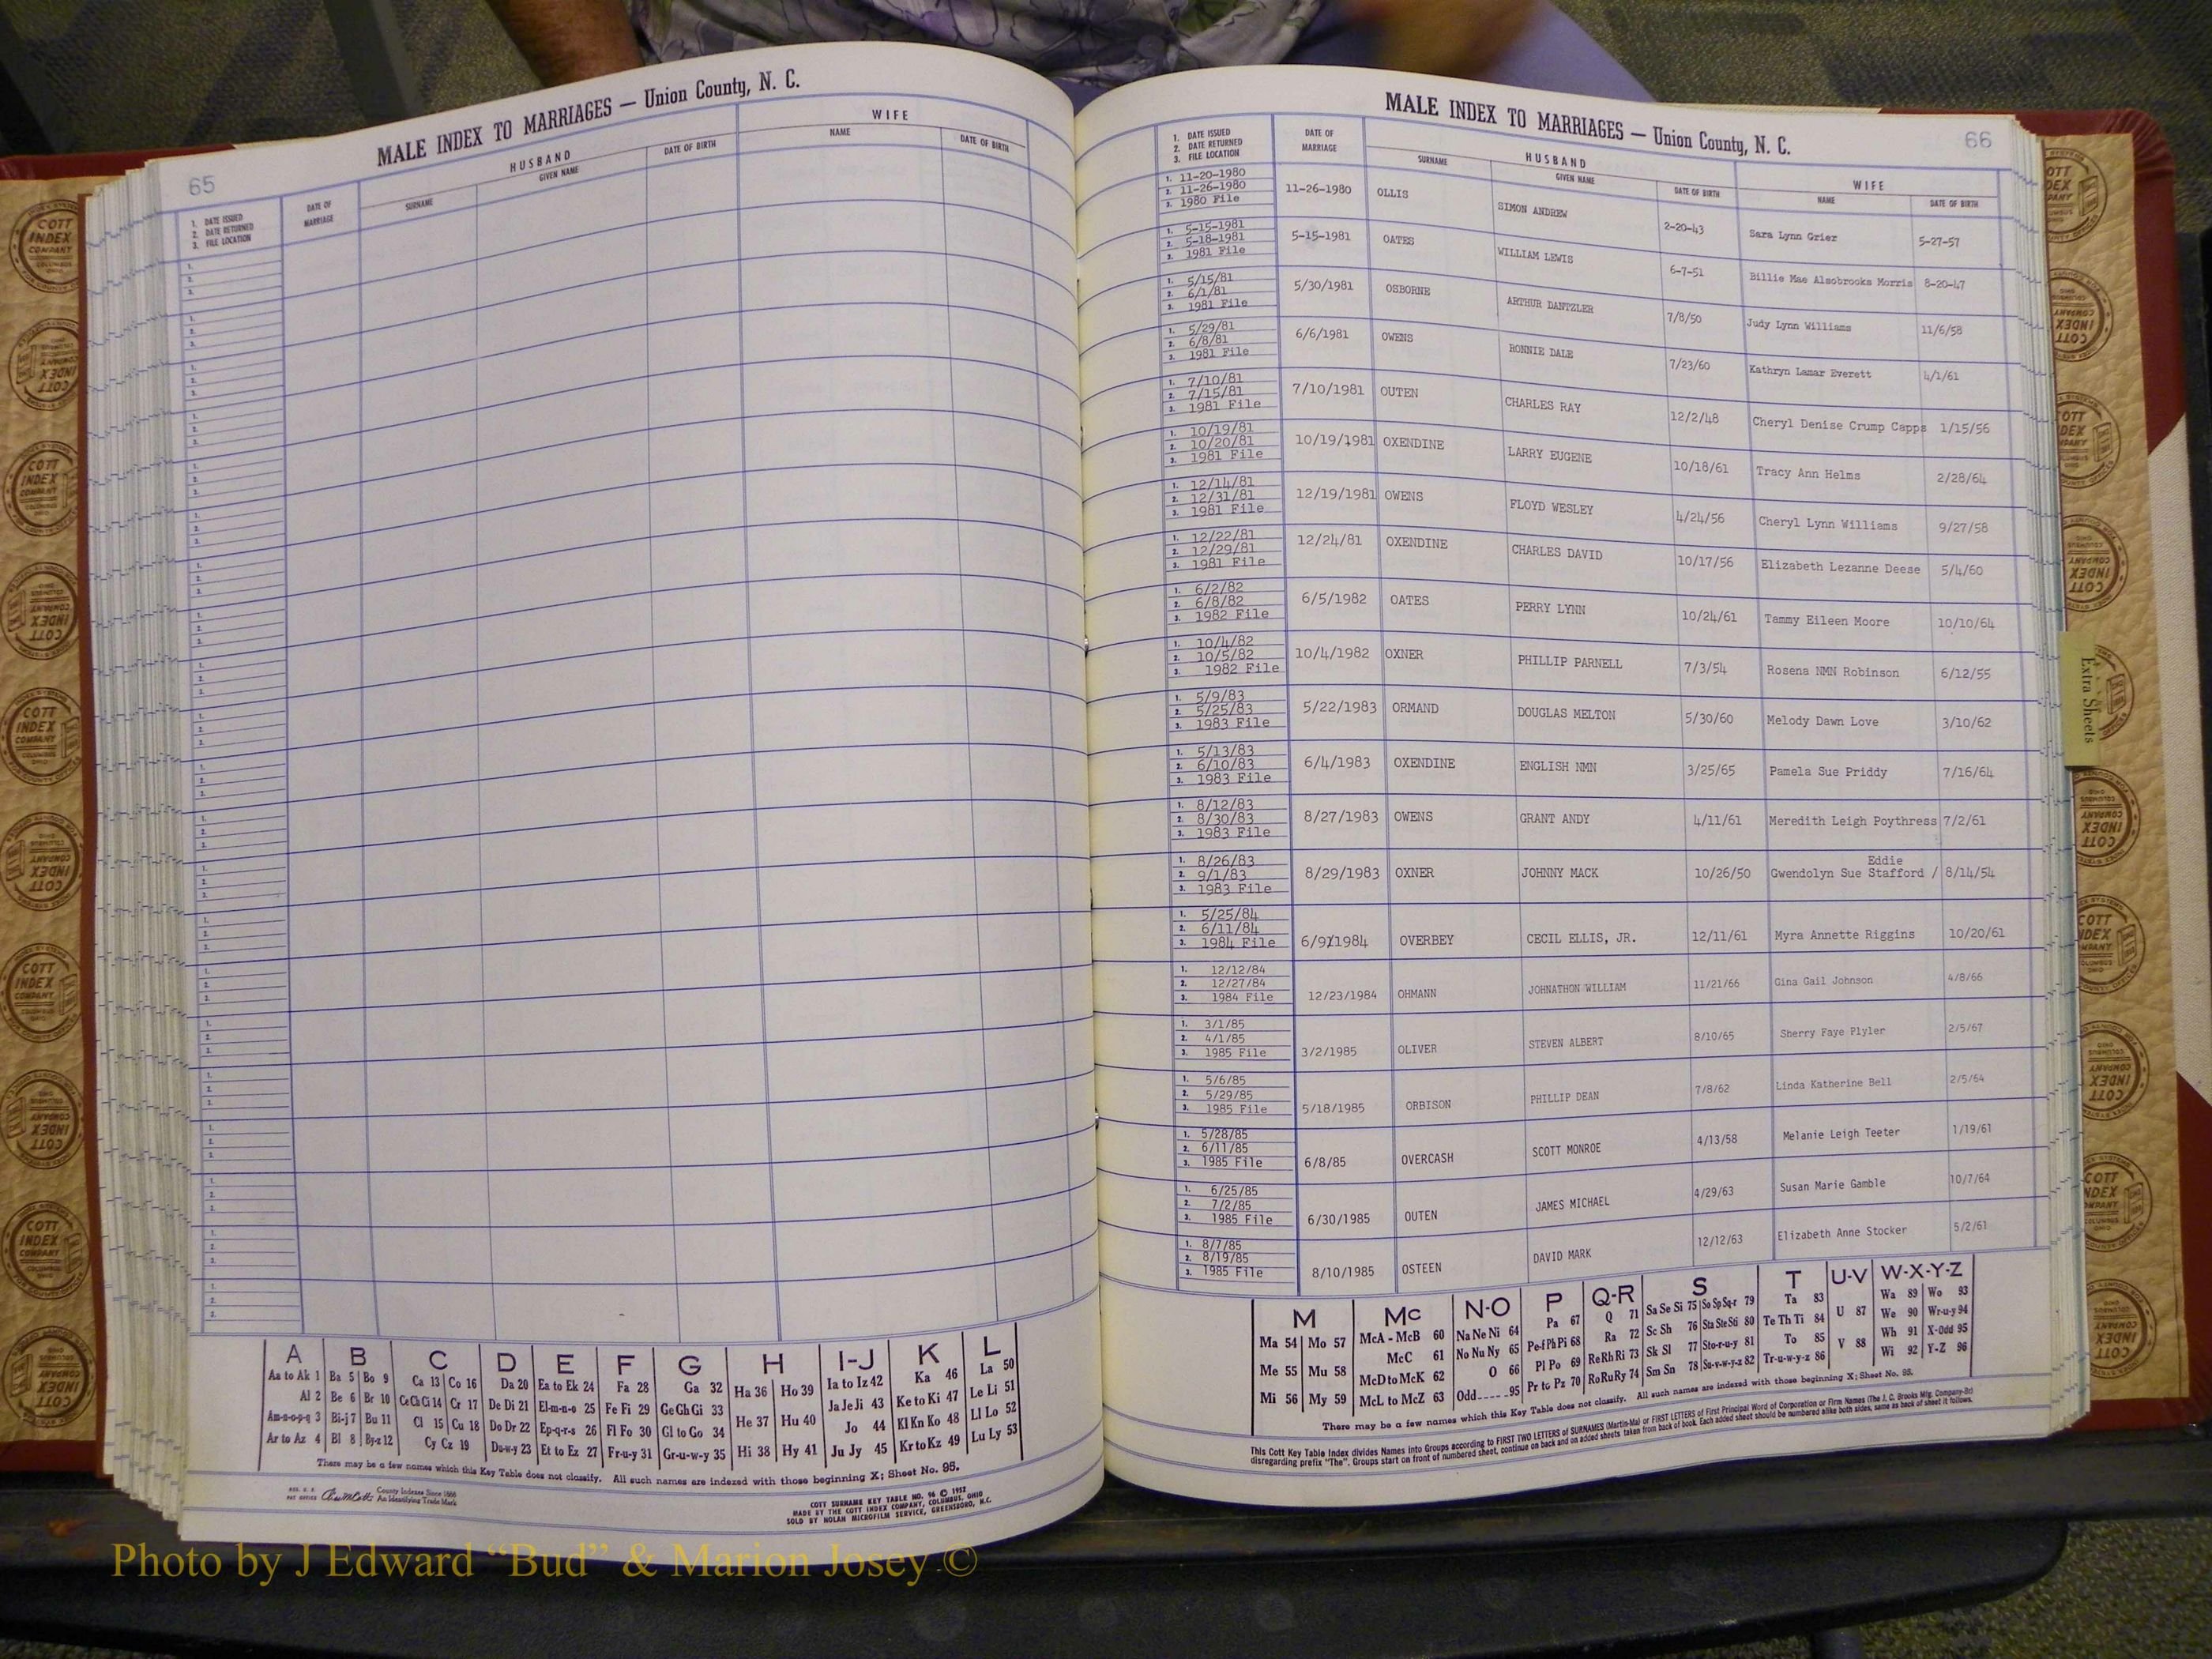 65
MALE INDEX TO MARRIAGES — Union County, N. C.
1. DATE ISSUED
2. DATE RETURNED
3. FILE LOCATION
DATE OF MARRIAGE
HUSBAND
SURNAME GIVEN NAME DATE OF BIRTH
WIFE
NAME DATE OF BIRTH
A B C D E F G H I-J K L
Aa to Ak 1 Ba 5 Bo 9 Ca 13 Co 16 Da 20 Ea to Ek 24 Fa 28 Ga 32 Ha 36 Ho 39 Ia to Iz 42 Ka 46 La 50
Al 2 Be 6 Br 10 Ce Ch Ci 14 Cr 17 De Di 21 El-m-n-o 25 Fe Fi 29 Ge Gh Gi 33 Ja Je Ji 43 Ke to Ki 47 Le Li 51
Am-n-o-p-q 3 Bi-j 7 Bu 11 Cl 15 Cu 18 Do Dr 22 Ep-q-r-s 26 Fl Fo 30 Gl to Go 34 He 37 Hu 40 Jo 44 Kl Kn Ko 48 Ll Lo 52
Ar to Az 4 Bl 8 By-z 12 Cy Cz 19 Du-w-y 23 Et to Ez 27 Fr-u-y 31 Gr-u-w-y 35 Hi 38 Hy 41 Ju Jy 45 Kr to Kz 49 Lu Ly 53
There may be a few names which this Key Table does not classify. All such names are indexed with those beginning X; Sheet No. 95.
County Indexes Since 1888
An Identifying Trade Mark
COTT SURNAME KEY TABLE NO. 96 © 1952
MADE BY THE COTT INDEX COMPANY, COLUMBUS, OHIO
SOLD BY NOLAN MICROFILM SERVICE, GREENSBORO, N.C.
66
MALE INDEX TO MARRIAGES — Union County, N. C.
1. DATE ISSUED
2. DATE RETURNED
3. FILE LOCATION
DATE OF MARRIAGE
HUSBAND
SURNAME GIVEN NAME DATE OF BIRTH
WIFE
NAME DATE OF BIRTH
1. 11-20-1980
2. 11-26-1980
3. 1980 File
11-26-1980 OLLIS SIMON ANDREW 2-20-43 Sara Lynn Grier 5-27-57
1. 5-15-1981
2. 5-18-1981
3. 1981 File
5-15-1981 OATES WILLIAM LEWIS 6-7-51 Billie Mae Alsobrooks Morris 8-20-47
1. 5/15/81
2. 6/1/81
3. 1981 File
5/30/1981 OSBORNE ARTHUR DANTZLER 7/8/50 Judy Lynn Williams 11/6/58
1. 5/29/81
2. 6/8/81
3. 1981 File
6/6/1981 OWENS RONNIE DALE 7/23/60 Kathryn Lamar Everett 4/1/61
1. 7/10/81
2. 7/15/81
3. 1981 File
7/10/1981 OUTEN CHARLES RAY 12/2/48 Cheryl Denise Crump Capps 1/15/56
1. 10/19/81
2. 10/20/81
3. 1981 File
10/19/1981 OXENDINE LARRY EUGENE 10/18/61 Tracy Ann Helms 2/28/64
1. 12/14/81
2. 12/31/81
3. 1981 File
12/19/1981 OWENS FLOYD WESLEY 4/24/56 Cheryl Lynn Williams 9/27/58
1. 12/22/81
2. 12/29/81
3. 1981 File
12/24/81 OXENDINE CHARLES DAVID 10/17/56 Elizabeth Lezanne Deese 5/4/60
1. 6/2/82
2. 6/8/82
3. 1982 File
6/5/1982 OATES PERRY LYNN 10/24/61 Tammy Eileen Moore 10/10/64
1. 10/4/82
2. 10/5/82
3. 1982 File
10/4/1982 OXNER PHILLIP PARNELL 7/3/54 Rosena NMN Robinson 6/12/55
1. 5/9/83
2. 5/25/83
3. 1983 File
5/22/1983 ORMAND DOUGLAS MELTON 5/30/60 Melody Dawn Love 3/10/62
1. 5/13/83
2. 6/10/83
3. 1983 File
6/4/1983 OXENDINE ENGLISH NMN 3/25/65 Pamela Sue Priddy 7/16/64
1. 8/12/83
2. 8/30/83
3. 1983 File
8/27/1983 OWENS GRANT ANDY 4/11/61 Meredith Leigh Poythress 7/2/61
1. 8/26/83
2. 9/1/83
3. 1983 File
Eddie
8/29/1983 OXNER JOHNNY MACK 10/26/50 Gwendolyn Sue Stafford / 8/14/54
1. 5/25/84
2. 6/11/84
3. 1984 File
6/9/1984 OVERBEY CECIL ELLIS, JR. 12/11/61 Myra Annette Riggins 10/20/61
1. 12/12/84
2. 12/27/84
3. 1984 File
12/23/1984 OHMANN JOHNATHON WILLIAM 11/21/66 Gina Gail Johnson 4/8/66
1. 3/1/85
2. 4/1/85
3. 1985 File
3/2/1985 OLIVER STEVEN ALBERT 8/10/65 Sherry Faye Plyler 2/5/67
1. 5/6/85
2. 5/29/85
3. 1985 File
5/18/1985 ORBISON PHILLIP DEAN 7/8/62 Linda Katherine Bell 2/5/64
1. 5/28/85
2. 6/11/85
3. 1985 File
6/8/85 OVERCASH SCOTT MONROE 4/13/58 Melanie Leigh Teeter 1/19/61
1. 6/25/85
2. 7/2/85
3. 1985 File
6/30/1985 OUTEN JAMES MICHAEL 4/29/63 Susan Marie Gamble 10/7/64
1. 8/7/85
2. 8/19/85
3. 1985 File
8/10/1985 OSTEEN DAVID MARK 12/12/63 Elizabeth Anne Stocker 5/2/61
M Mc N-O P Q-R S T U-V W-X-Y-Z
Ma 54 Mo 57 McA - McB 60 Na Ne Ni 64 Pa 67 Q 71 Sa Se Si 75 So Sp Sq-r 79 Ta 83 U 87 Wa 89 Wo 93
Me 55 Mu 58 McC 61 No Nu Ny 65 Pe-f Ph Pi 68 Ra 72 Sc Sh 76 Sta Ste Sti 80 Te Th Ti 84 We 90 Wr-u-y 94
McD to McK 62 O 66 Pl Po 69 Re Rh Ri 73 Sk Sl 77 Sto-r-u-y 81 To 85 V 88 Wh 91 X-Odd 95
Mi 56 My 59 McL to McZ 63 Odd 95 Pr to Pz 70 Ro Ru Ry 74 Sm Sn 78 Su-v-w-y-z 82 Tr-u-w-y-z 86 Wi 92 Y-Z 96
There may be a few names which this Key Table does not classify. All such names are indexed with those beginning X; Sheet No. 95.
This Cott Key Table Index divides Names into Groups according to FIRST TWO LETTERS of SURNAMES (Martin-Ma) or FIRST LETTERS of First Principal Word of Corporation or Firm Names (The J. C. Brooks Mfg. Company-Br)
disregarding prefix "The". Groups start on front of numbered sheet, continue on back and on added sheets taken from back of book. Each added sheet should be numbered alike both sides, same as back of sheet it follows.
Extra Sheets
COTT INDEX COMPANY COLUMBUS OHIO
Photo by J Edward “Bud” & Marion Josey ©